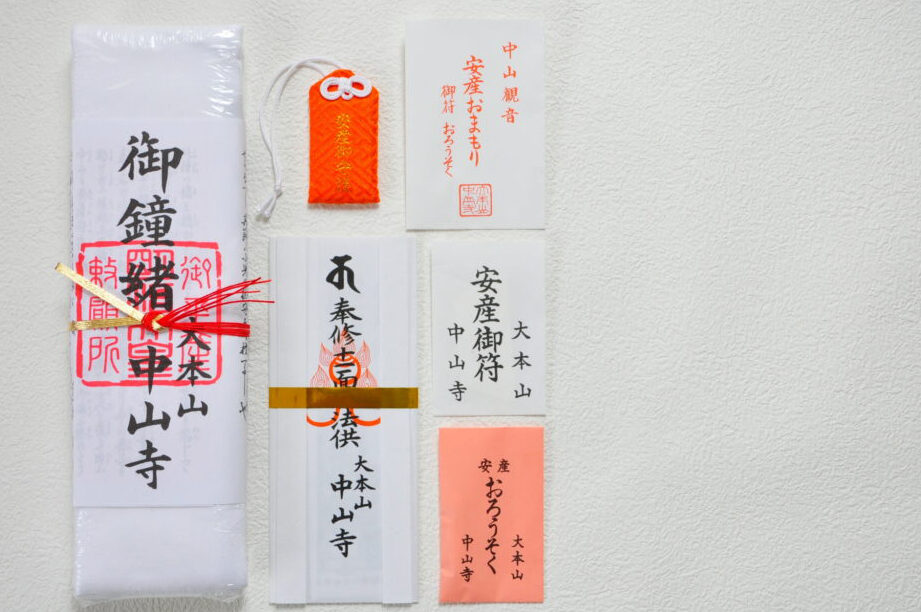 御鐘緒
大本山
中山寺
勅願所
安産御守護
中山觀音
安産おまもり
御符 おろうそく
奉修十一面
法供
大本山
中山寺
安産御符
大本山
中山寺
安産
おろうそく
大本山
中山寺